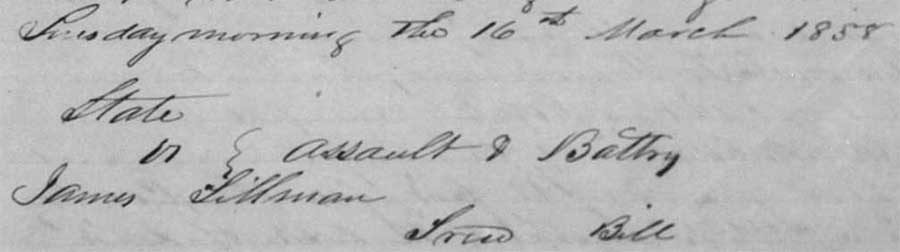 Tuesday morning the 16th March 1858
State
vs } Assault & Battry
James Tillman
True Bill